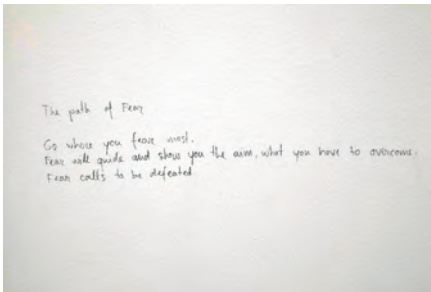 The path of Fear
Go where you feare most.
Fear will guide and show you the aim, what you have to overcome.
Fear calls to be defeated